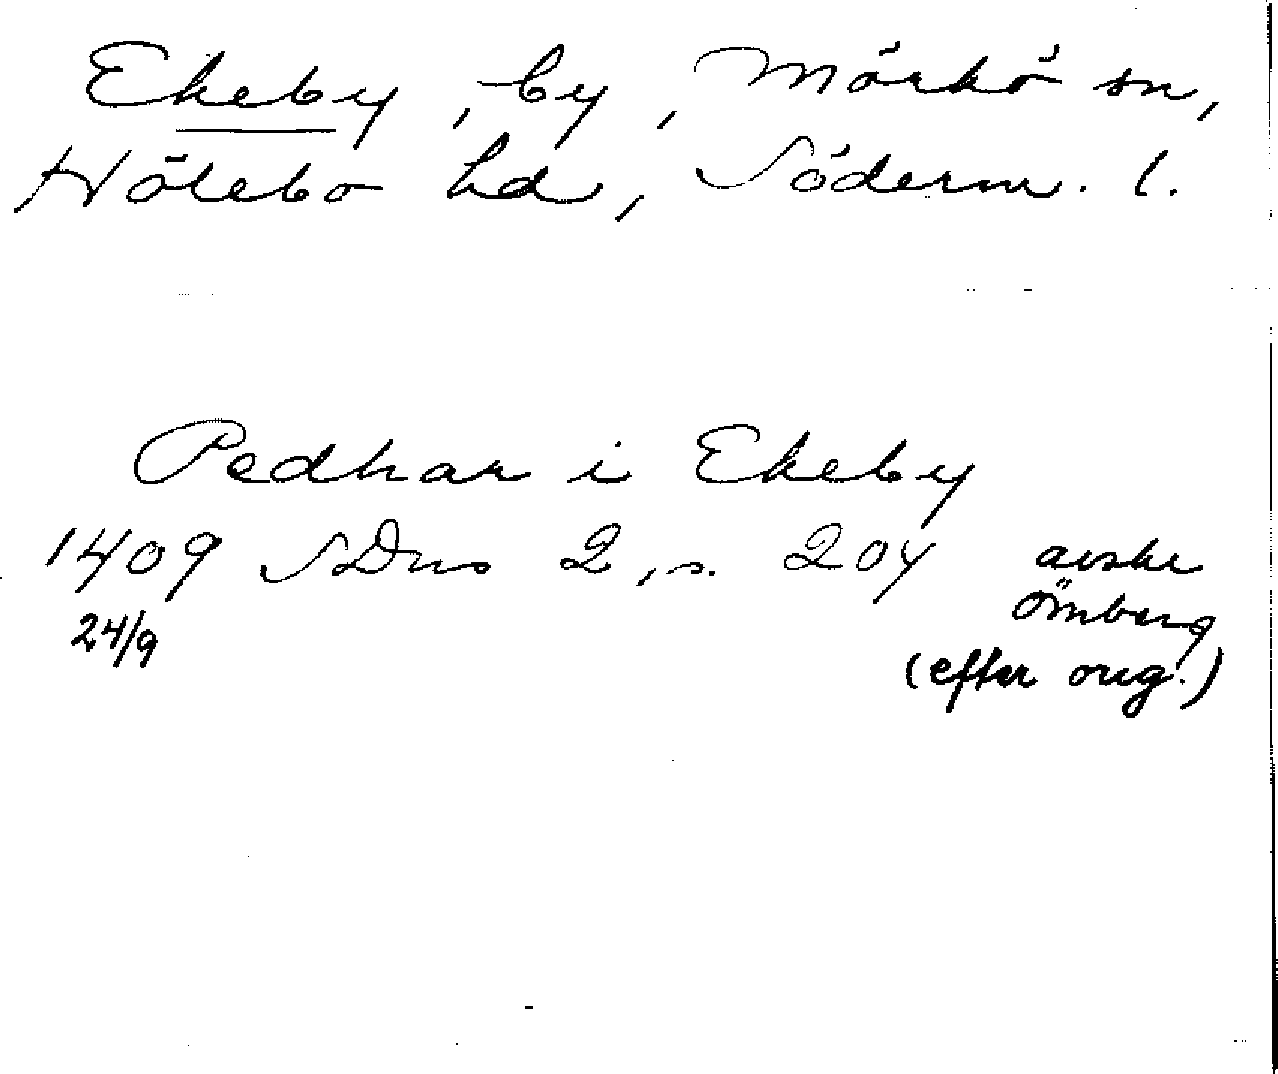 Ekeby, by, Mörkö sn,
Hölebo hd, Söderm. l.
Pedhar i Ekeby
1409 SDns 2, s. 204 avskr
24/9 Ömberg
(efter orig.)